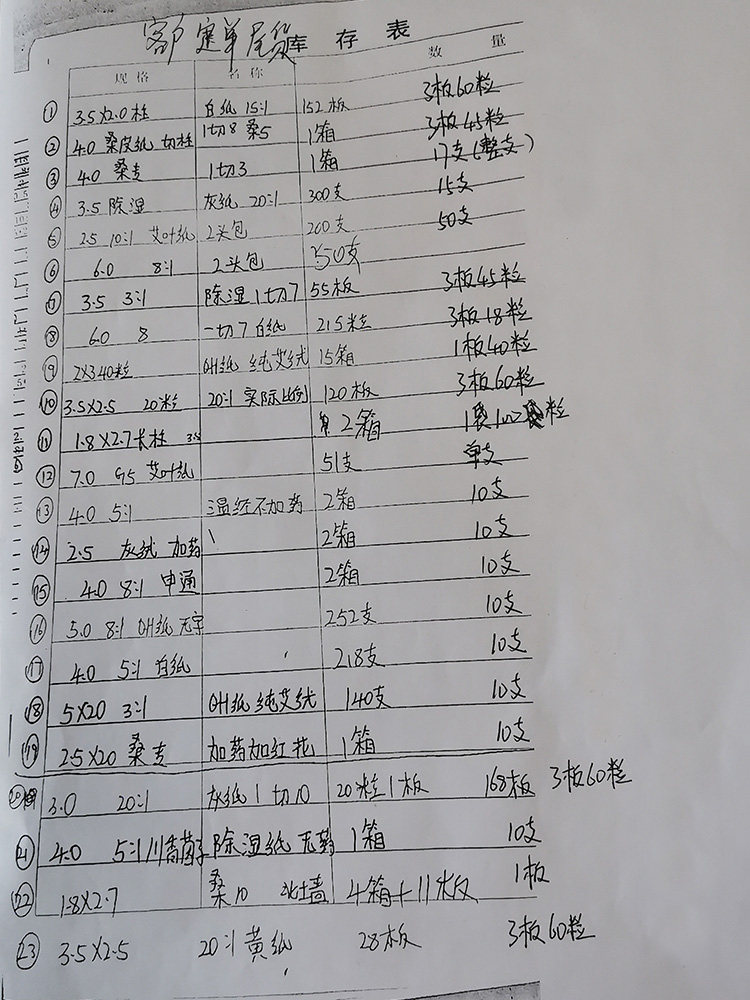 客户定单尾货库存表
规格 名称 数量
① 3.5X2.0柱 白纸 15:1 152板 3板60粒
② 4.0 桑皮纸 切柱 1切8 桑5 1箱 3板45粒
③ 4.0 桑支 1切3 1箱 17支(整支)
④ 3.5 除湿 灰纸 20:1 300支 15支
⑤ 2.5 10:1 艾叶纸 2头包 200支 50支
⑥ 6.0 8:1 2头包 350支
⑦ 3.5 3:1 除湿1切7 55板 3板45粒
⑧ 6.0 8 一切7白纸 215粒 3板18粒
⑨ 2X3 40粒 OH纸 纯艾绒 15箱 1板40粒
⑩ 3.5X2.5 20粒 20:1 实际比例 120板 3板60粒
⑪ 1.8X2.7长柱 2箱 1袋100粒
⑫ 7.0 G5 艾叶纸 51支 单支
⑬ 4.0 5:1 温经不加药 2箱 10支
⑭ 2.5 灰绒 加药 \ 2箱 10支
⑮ 4.0 8:1 申通 2箱 10支
⑯ 5.0 8:1 OH纸 无字 252支 10支
⑰ 4.0 5:1 白纸 218支 10支
⑱ 5X20 3:1 OH纸 纯艾绒 140支 10支
⑲ 2.5X20 桑支 加药加红花 1箱 10支
⑳ 3.0 20:1 灰纸1切10 20粒1板 168板 3板60粒
㉑ 4.0 5:1 除湿纸 无药 1箱 10支
㉒ 1.8X2.7 桑10 4箱+11板 1板
㉓ 3.5X2.5 20:1黄纸 28板 3板60粒